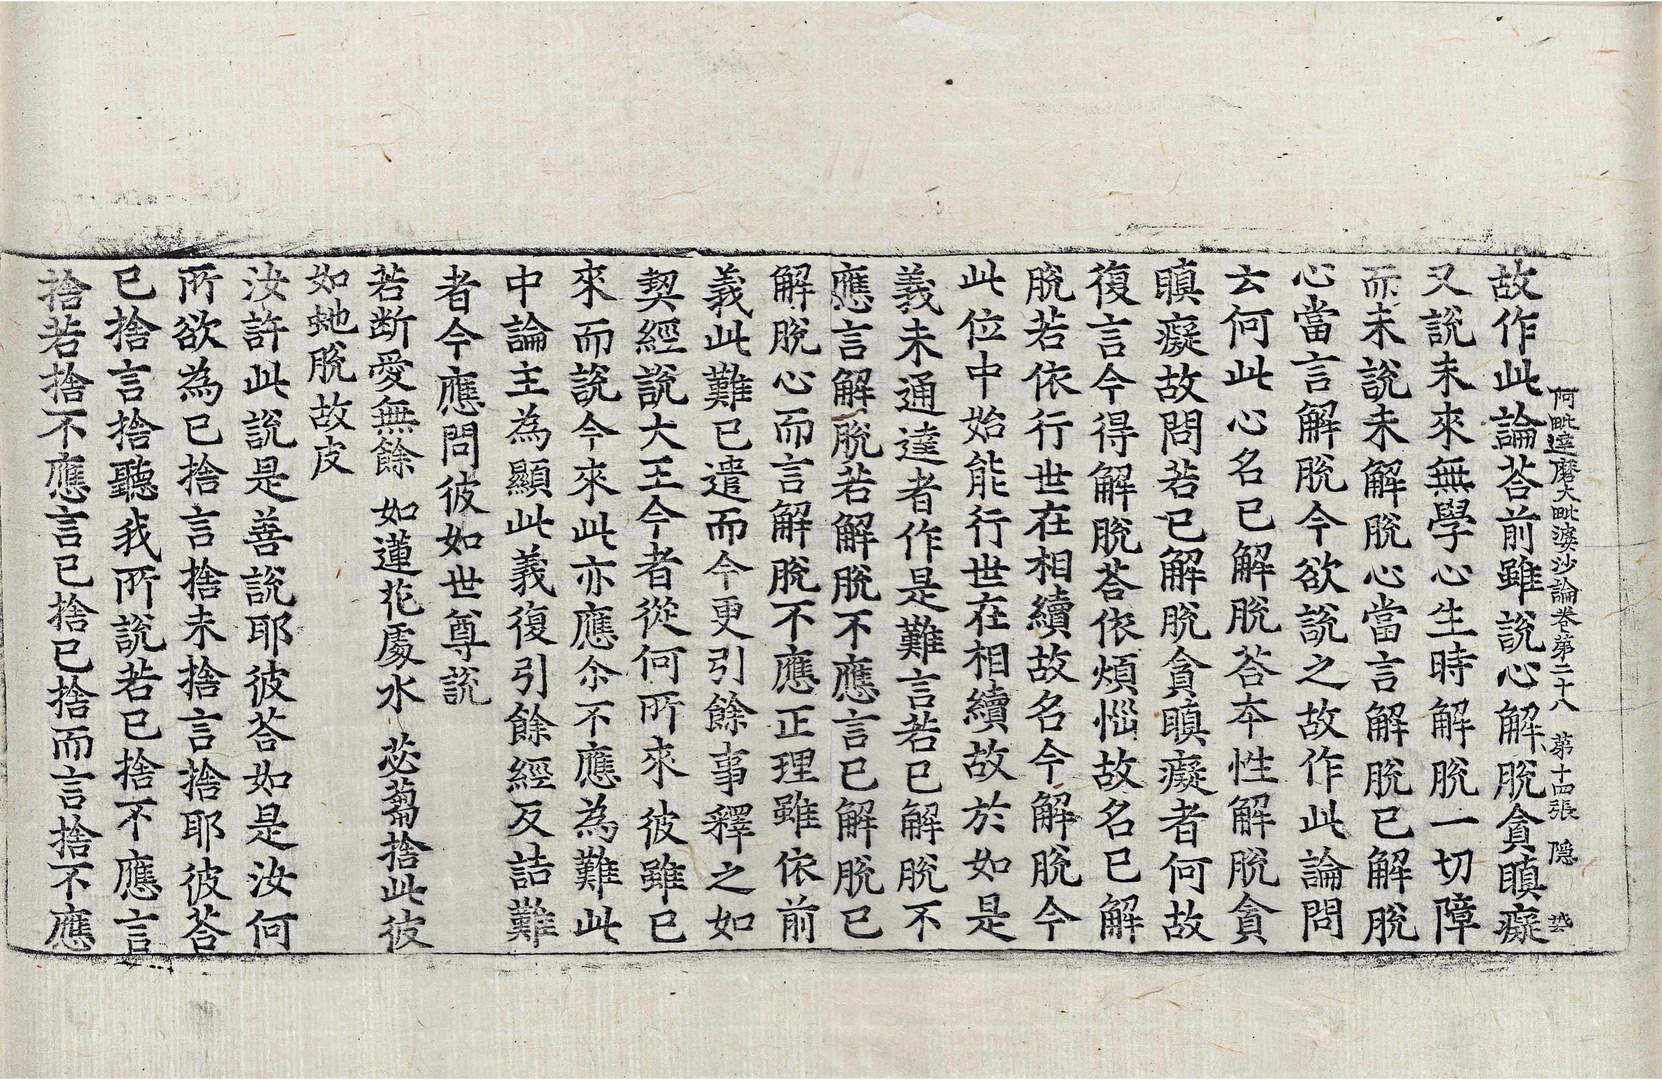 阿毗達磨大毗婆沙論卷第二十八 第十四張 隱
故作此論荅前雖說心解脫貪瞋癡
又說未來無學心生時解脫一切障
而未說未解脫心當言解脫已解脫
心當言解脫今欲說之故作此論問
云何此心名已解脫荅本性解脫貪
瞋癡故問若已解脫貪瞋癡者何故
復言今得解脫荅依煩惱故名已解
脫若依行世在相續故名今解脫今
此位中始能行世在相續故於如是
義未通達者作是難言若已解脫不
應言解脫若解脫不應言已解脫已
解脫心而言解脫不應正理雖依前
義此難已遣而今更引餘事釋之如
契經說大王今者從何所來彼雖已
來而說今來此亦應尒不應為難此
中論主為顯此義復引餘經反詰難
者今應問彼如世尊說
若断愛無餘 如蓮花處水 苾蒭捨此彼
如虵脫故皮
汝許此說是善說耶彼荅如是汝何
所欲為已捨言捨未捨言捨耶彼荅
已捨言捨聽我所說若已捨不應言
捨若捨不應言已捨已捨而言捨不應